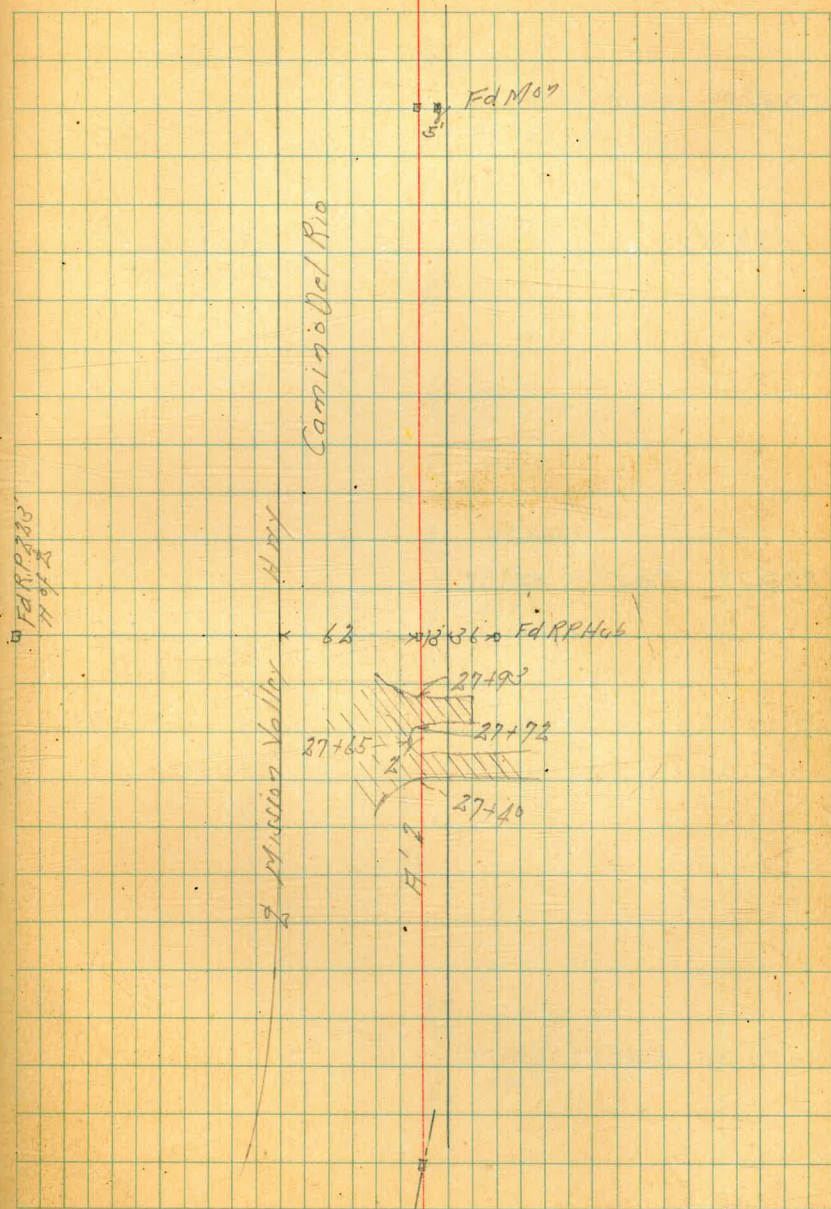 Fd Mon
5'
Camino Del Rio
Fd R.P. 225'
℄ Mission Valley Hwy
62
13
36
Fd RP Hub
27+93
27+72
27+65
2
27+40